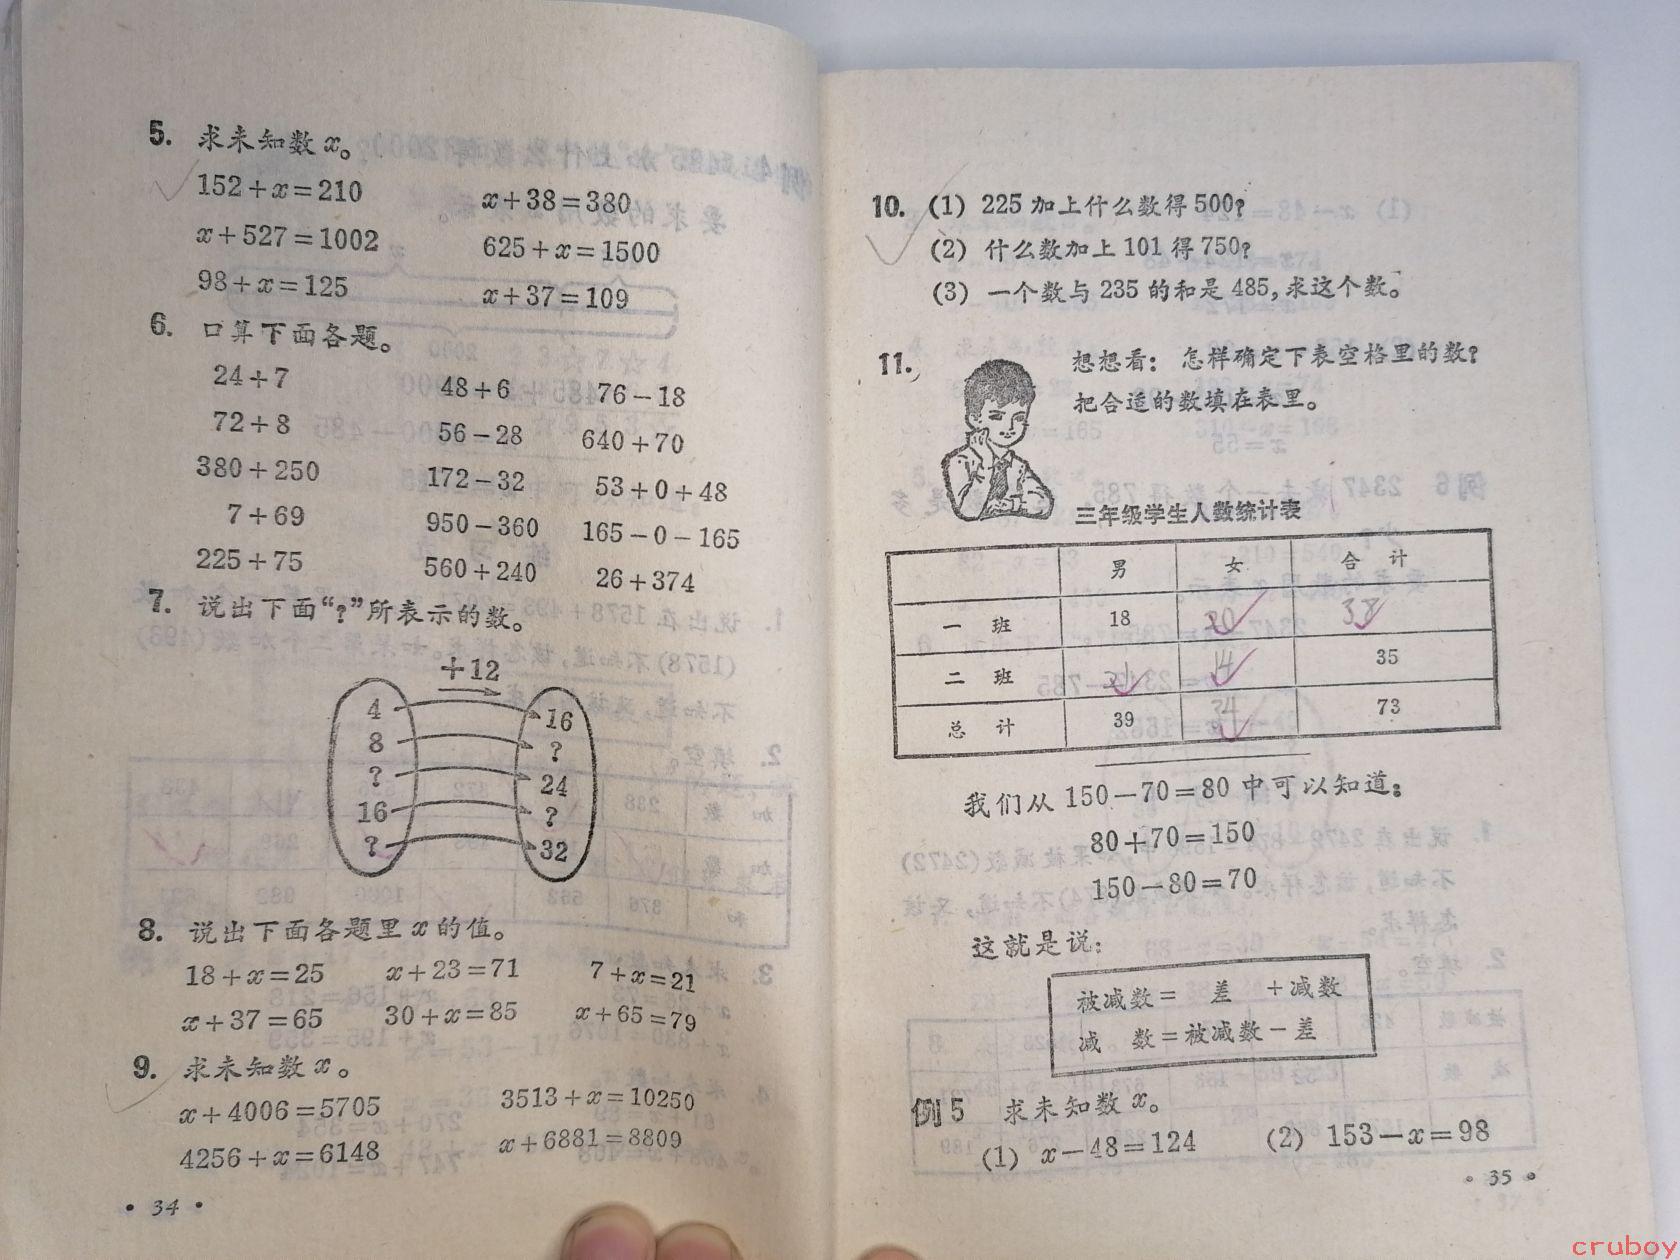 5. 求未知数 x。
152+x=210 x+38=380
x+527=1002 625+x=1500
98+x=125 x+37=109
6. 口算下面各题。
24+7 48+6 76-18
72+8 56-28 640+70
380+250 172-32 53+0+48
7+69 950-360 165-0-165
225+75 560+240 26+374
7. 说出下面“?”所表示的数。
+12
4 16
8 ?
? 24
16 ?
? 32
8. 说出下面各题里 x 的值。
18+x=25 x+23=71 7+x=21
x+37=65 30+x=85 x+65=79
9. 求未知数 x。
x+4006=5705 3513+x=10250
4256+x=6148 x+6881=8809
• 34 •
10. (1) 225 加上什么数得 500?
(2) 什么数加上 101 得 750?
(3) 一个数与 235 的和是 485,求这个数。
11. 想想看: 怎样确定下表空格里的数?
把合适的数填在表里。
三年级学生人数统计表
男 女 合计
一班 18 20 38
二班 21 14 35
总计 39 34 73
我们从 150-70=80 中可以知道:
80+70=150
150-80=70
这就是说:
被减数= 差 +减数
减 数=被减数-差
例 5 求未知数 x。
(1) x-48=124 (2) 153-x=98
• 35 •
cruboy